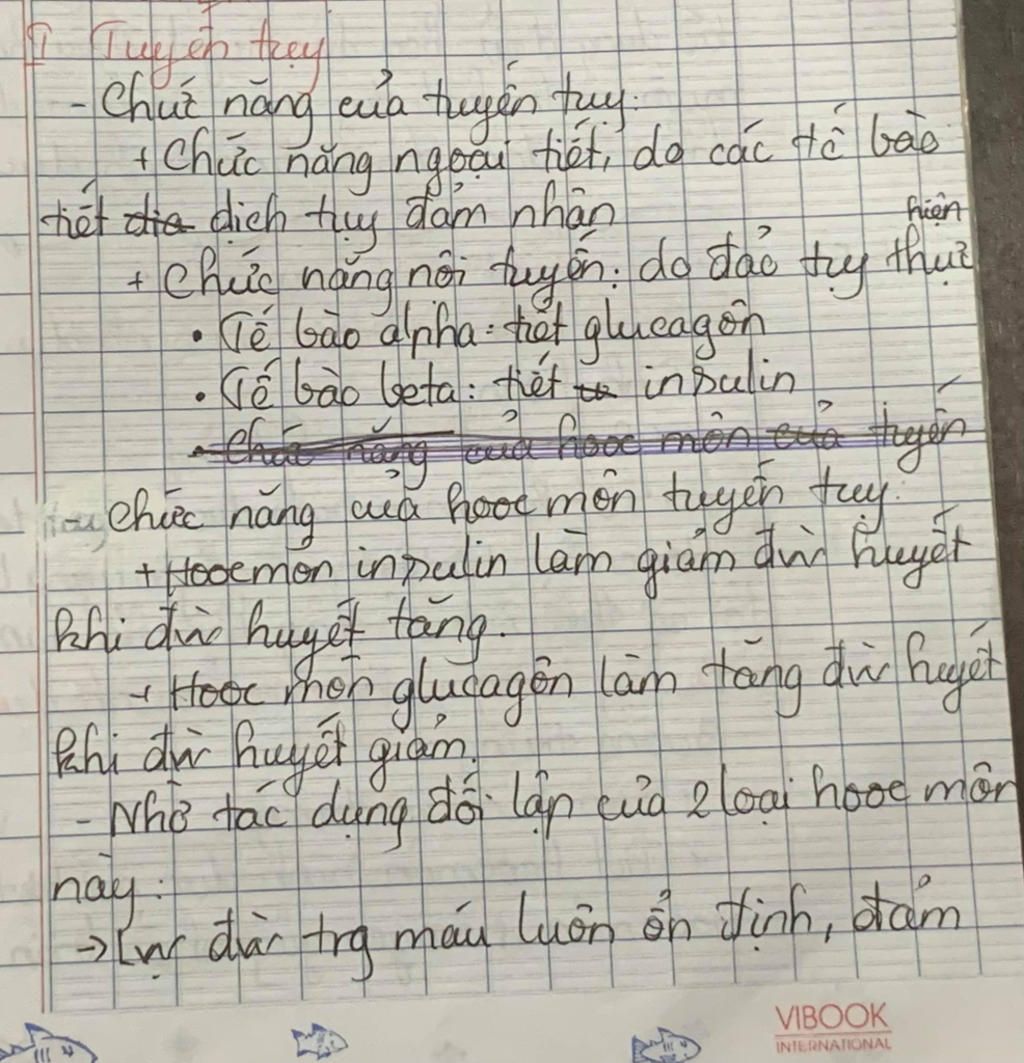 I Tuyến tụy
- Chức năng của tuyến tụy:
+ Chức năng ngoại tiết, do các tế bào
tiết dịch tụy đảm nhận
hiện
+ Chức năng nội tuyến: do đảo tụy thực
• Tế bào alpha: tiết glucagôn
• Tế bào beta: tiết insulin
• Chức năng của hooc môn của tuyến
chức năng của hooc môn tuyến tụy:
+ Hoocmon insulin làm giảm đườ huyết
khi đườ huyết tăng.
+ Hooc môn glucagôn làm tăng đườ huyết
khi đườ huyết giảm.
- Nhờ tác dụng đối lập của 2 loại hooc môn
này:
→ Lượ đườ trg máu luôn ổn định, đảm
VIBOOK
INTERNATIONAL